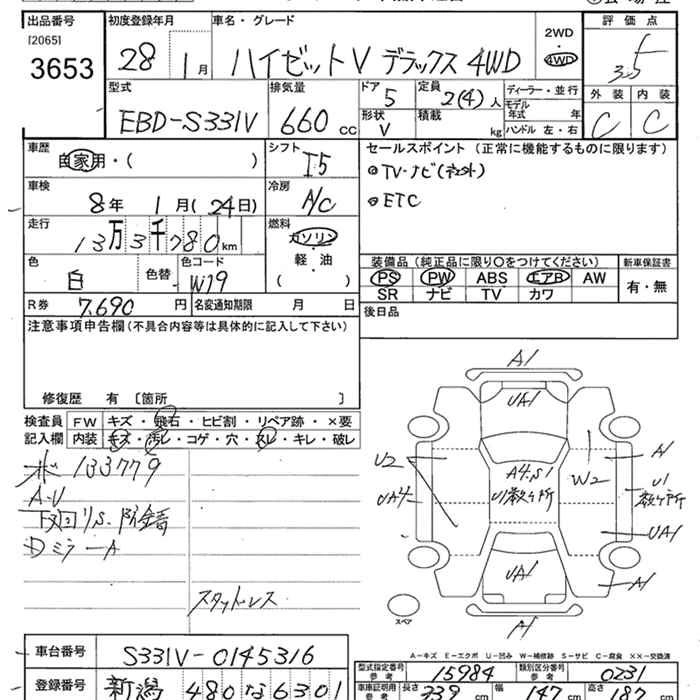 出品番号 初度登録年月 車名・グレード 評価点
[2065] 2WD
3653 28 1月 ハイゼットV デラックス 4WD 4WD 3.5
型式 排気量 ドア 定員 ディーラー・並行 外装 内装
5 2(4)人 モデル年式 年
EBD-S331V 660cc 形状 積載 C C
V kg ハンドル 左・右
車歴 シフト セールスポイント (正常に機能するものに限ります)
自家用・( ) I5 TV・ナビ
車検 冷房 ETC
8年 1月(24日) A/C
走行 燃料
13万3千780km ガソリン
軽・油
色 色替 色コード ( ) 装備品 (純正品に限り○をつけてください) 新車保証書
白 W19 PS PW ABS エアB AW 有・無
SR ナビ TV カワ
R券 7,690円 名変通知期限 月 日 後日品
注意事項申告欄(不具合内容等は具体的に記入して下さい)
修復歴 有 [箇所 ]
検査員 FW キズ・飛石・ヒビ割・リペア跡・×要
記入欄 内装 キズ・汚レ・コゲ・穴・スレ・キレ・破レ
133779
A-U
下回リS.防錆
Dミラ-A
スタッドレス
A1
UA1
U2 A4.S1 A1
W2 U1
UA4 U1数ヶ所 数ヶ所
UA1
UA1 A1
スペア
A1
A-キズ E-エクボ U-凹み W-補修跡 S-サビ C-腐食 XX-交換済
車台番号 S331V-0145316
型式指定番号 参考 15984 類別区分番号 参考 0231
登録番号 新潟 480 な 6301
車庫証明用 参考 長さ 339cm 幅 147cm 高さ 187cm